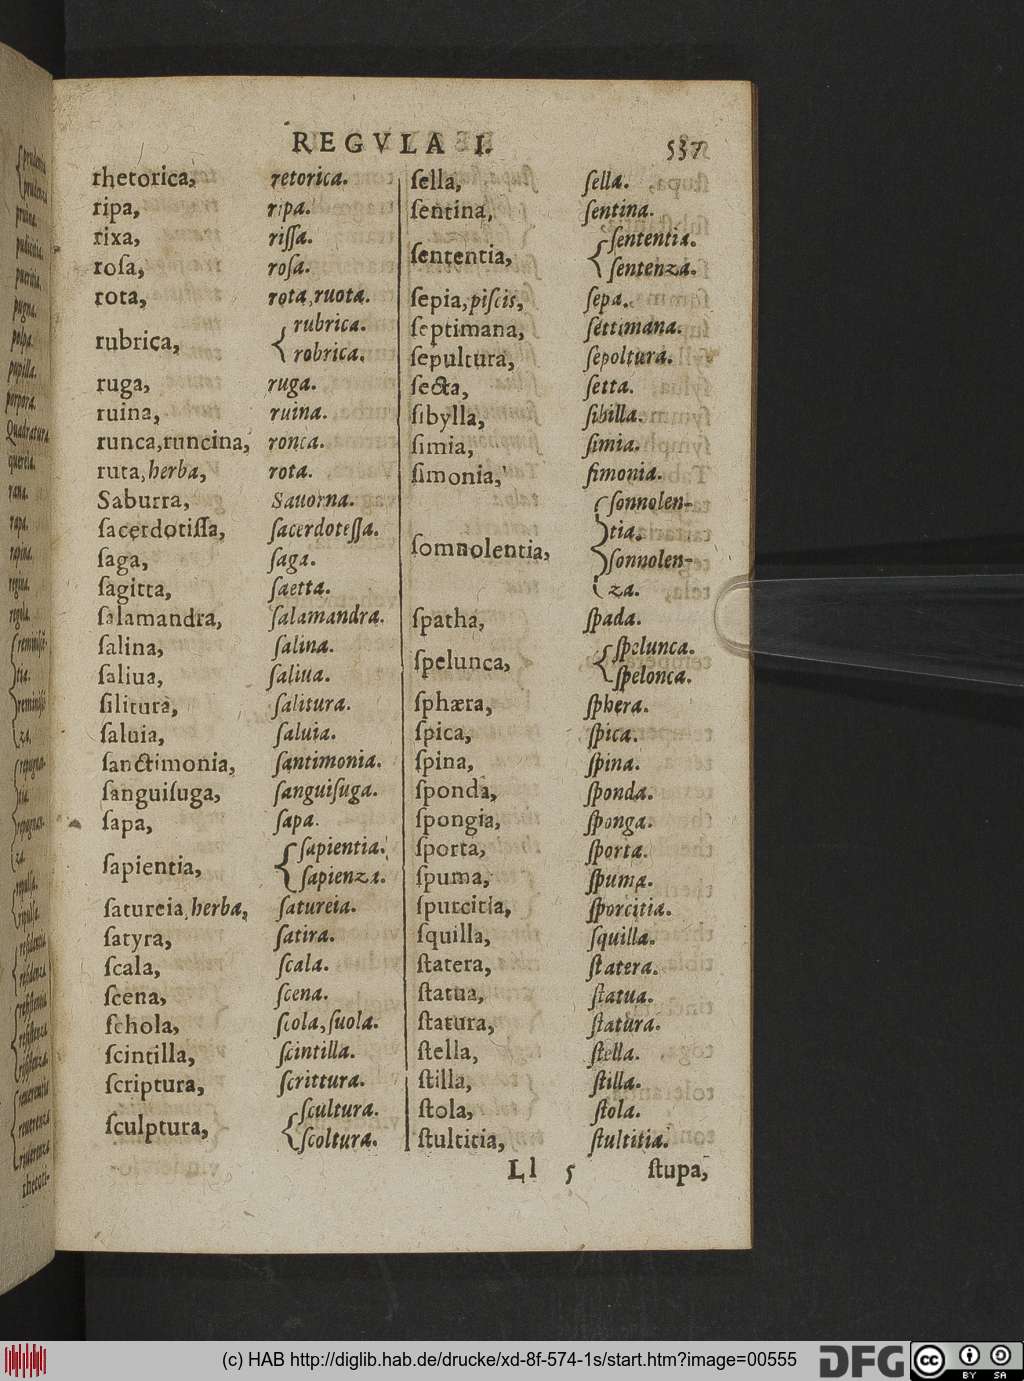 REGVLA I. 537
rhetorica, retorica.
ripa, ripa.
rixa, rissa.
roſa, roſa.
rota, rota, ruota.
rubrica, rubrica.
robrica.
ruga, ruga.
ruina, ruina.
runca, runcina, ronca.
ruta, herba, rota.
Saburra, Sauorna.
ſacerdotiſſa, ſacerdoteſſa.
ſaga, ſaga.
ſagitta, ſaetta.
ſalamandra, ſalamandra.
ſalina, ſalina.
ſaliua, ſaliua.
ſilitura, ſalitura.
ſaluia, ſaluia.
ſanctimonia, ſantimonia.
ſanguiſuga, ſanguiſuga.
ſapa, ſapa.
ſapientia, ſapientia.
ſapienza.
ſatureia, herba, ſatureia.
ſatyra, ſatira.
ſcala, ſcala.
ſcena, ſcena.
ſchola, ſcola, ſuola.
ſcintilla, ſcintilla.
ſcriptura, ſcrittura.
ſculptura, ſcultura.
ſcoltura.
ſella, ſella.
ſentina, ſentina.
ſententia, ſententia.
ſentenza.
ſepia, piſcis, ſepa.
ſeptimana, ſettimana.
ſepultura, ſepoltura.
ſecta, ſetta.
ſibylla, ſibilla.
ſimia, ſimia.
ſimonia, ſimonia.
ſomnolentia, ſonnolen-
tia.
ſonnolen-
za.
ſpatha, ſpada.
ſpelunca, ſpelunca.
ſpelonca.
ſphæra, ſphera.
ſpica, ſpica.
ſpina, ſpina.
ſponda, ſponda.
ſpongia, ſponga.
ſporta, ſporta.
ſpuma, ſpuma.
ſpurcitia, ſporcitia.
ſquilla, ſquilla.
ſtatera, ſtatera.
ſtatua, ſtatua.
ſtatura, ſtatura.
ſtella, ſtella.
ſtilla, ſtilla.
ſtola, ſtola.
ſtultitia, ſtultitia.
Ll 5 ſtupa,
(c) HAB http://diglib.hab.de/drucke/xd-8f-574-1s/start.htm?image=00555
DFG cc BY SA